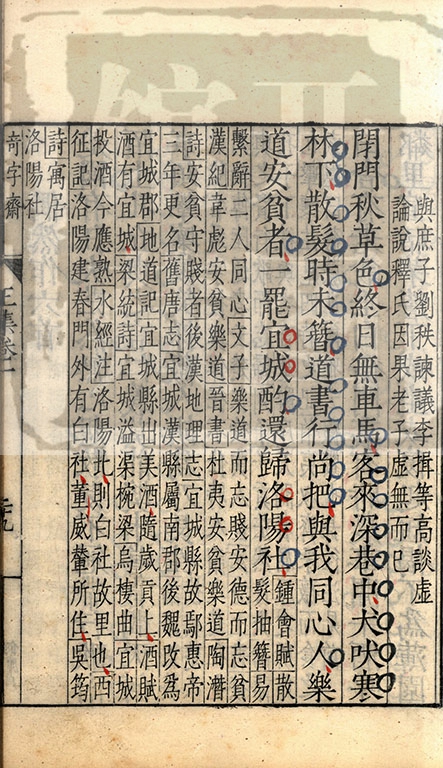 與庶子劉秩諫議李揖等高談虛
論說釋氏因果老子虛無而已
閉門秋草色終日無車馬客來深巷中犬吠寒
林下散髮時未簪道書行尚把與我同心人樂
道安貧者一罷宜城酌還歸洛陽社鍾會賦散
髮抽簪易
繫辭二人同心文子樂道而忘賤安德而忘貧
漢紀韋彪安貧樂道晉書杜夷安貧樂道陶潛
詩安貧守賤者後漢地理志宜城縣故鄢惠帝
三年更名舊唐志宜城漢縣屬南郡後魏改為
宜城郡地道記宜城縣出美酒隨歲貢上酒賦
酒有宜城梁統詩宜城溢渠椀梁烏棲曲宜城
投酒今應熟水經注洛陽此則白社故里也西
征記洛陽建春門外有白社董威輦所住吳筠
詩寓居
洛陽社
奇字齋
王集卷一